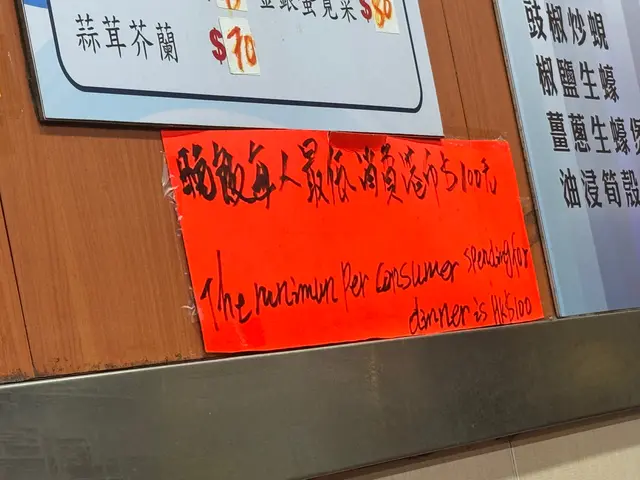 蒜茸芥蘭 $70
金銀蛋莧菜 $80
晚飯每人最低消費港币$100元
The minimun per consumer spending for
dinner is HK$100
豉椒炒蜆
椒鹽生蠔
薑蔥生蠔
油浸筍殼